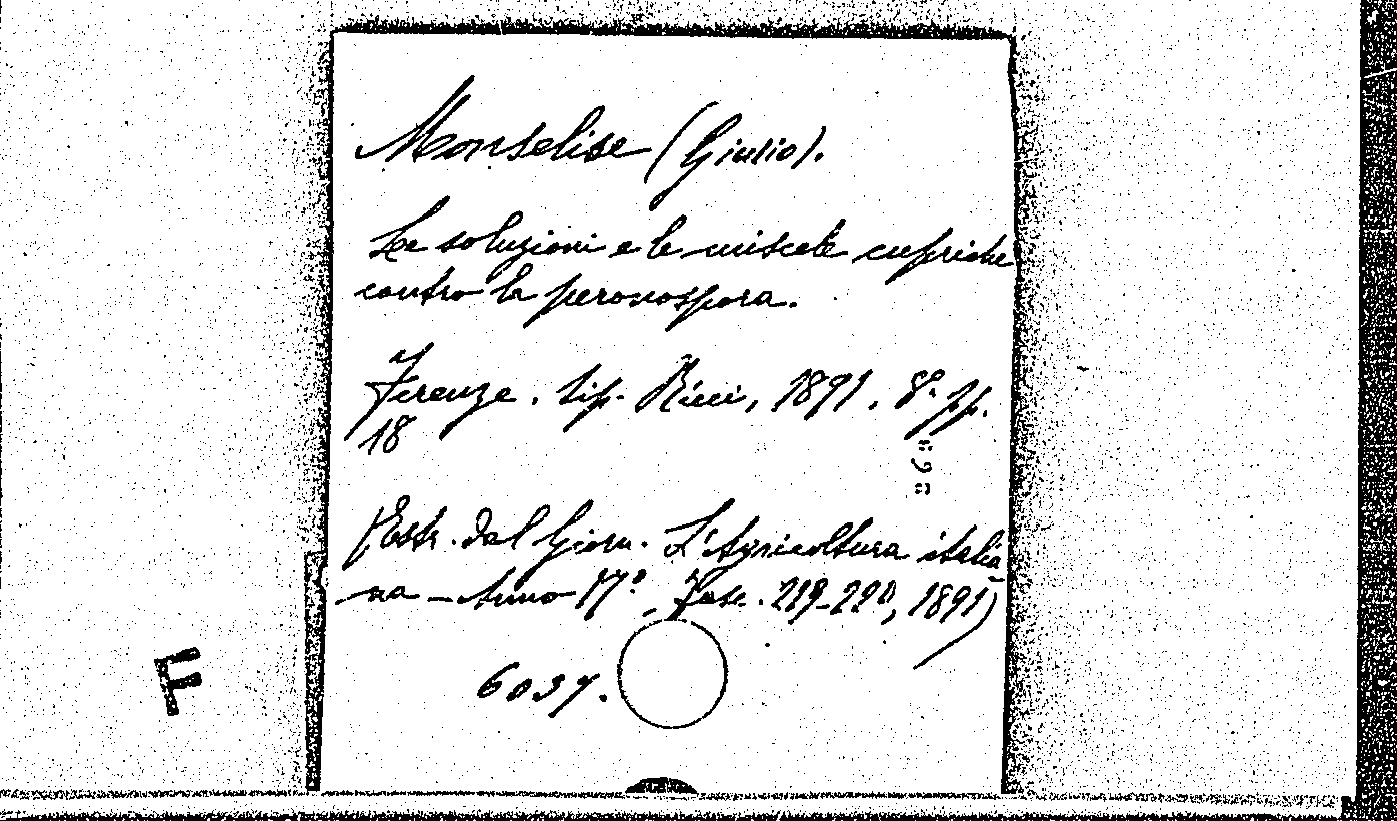 Monselise (Giulio).
Le soluzioni e le miscele cupriche
contro la peronospora.
Firenze. tip. Ricci, 1891. 8º pp.
18
"6"
(Estr. dal Giorn. L'Agricoltura italia
na - Anno 17º - Fasc. 219-220, 1891)
6037.
F